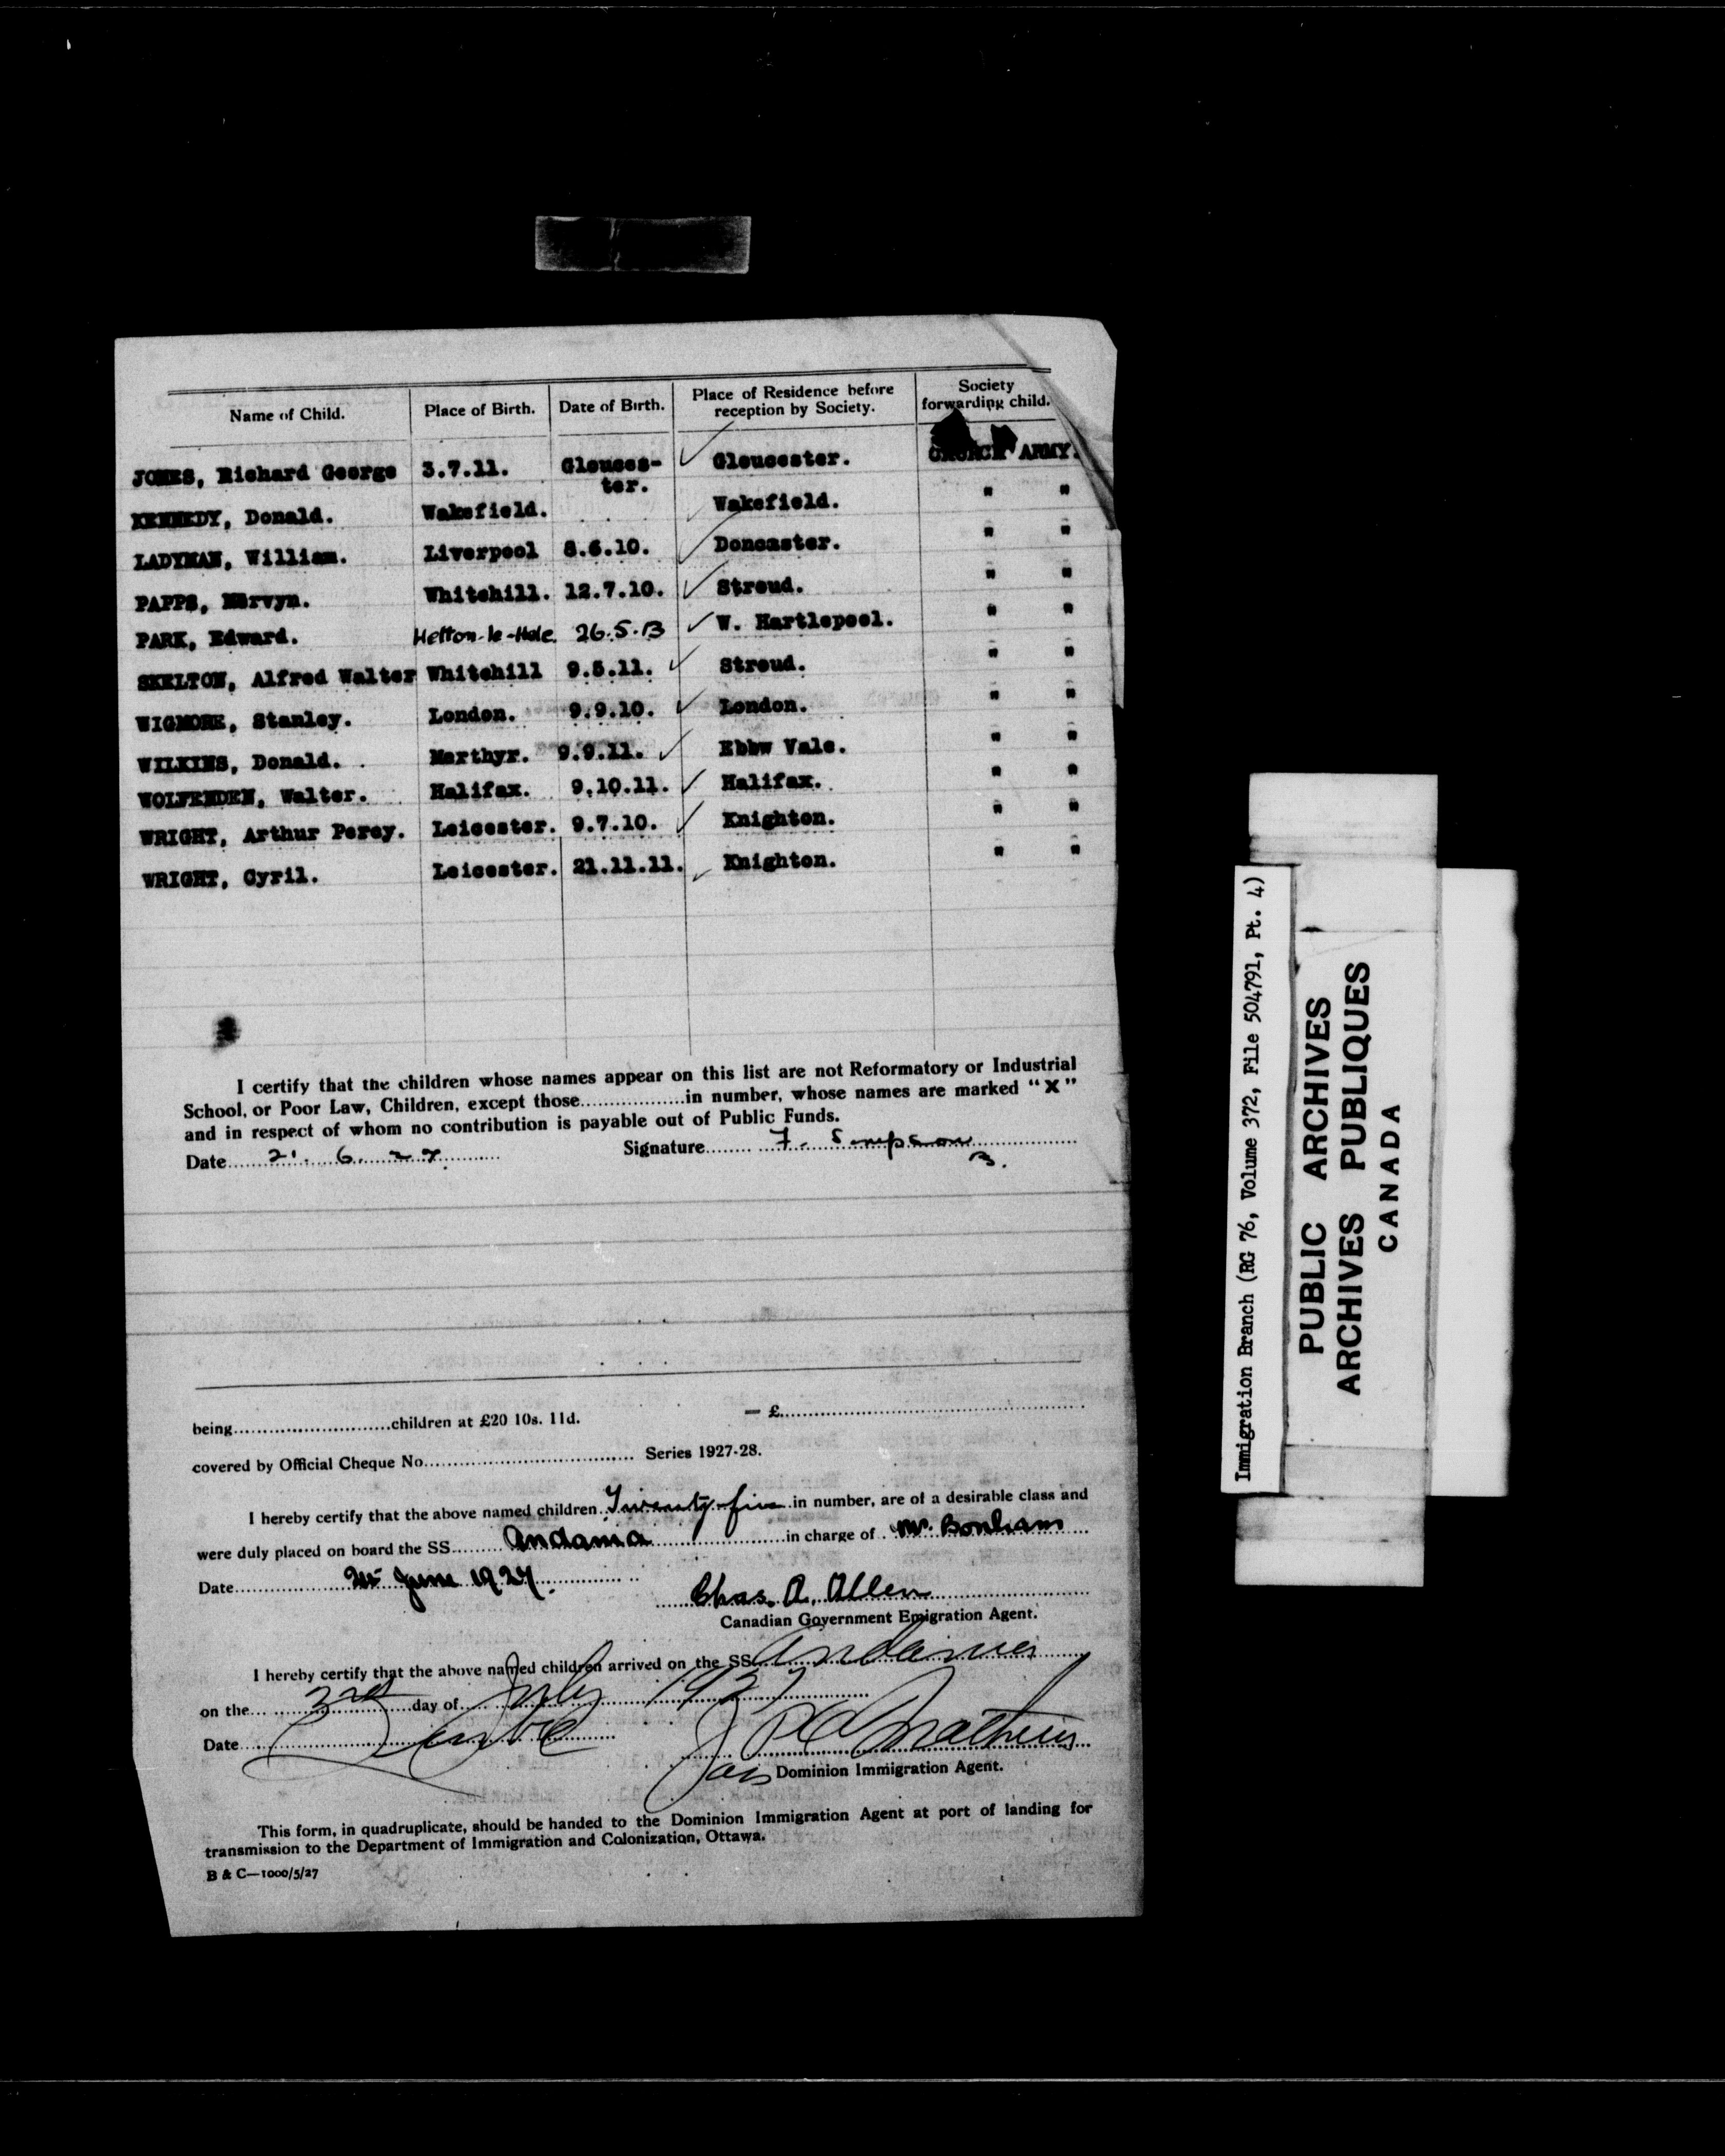 Name of Child. Place of Birth. Date of Birth. Place of Residence before reception by Society. Society forwarding child.
JONES, Richard George 3.7.11. Glouces-ter. Gloucester. CHURCH ARMY.
KENNEDY, Donald. Wakefield. Wakefield. " "
LADYMAN, William. Liverpool 8.6.10. Doncaster. " "
PAPPS, Mervyn. Whitehill. 12.7.10. Stroud. " "
PARK, Edward. Hetton-le-Hole. 26.5.13 W. Hartlepool. " "
SKELTON, Alfred Walter Whitehill 9.5.11. Stroud. " "
WIGMORE, Stanley. London. 9.9.10. London. " "
WILKINS, Donald. Merthyr. 9.9.11. Ebbw Vale. " "
WOLFENDEN, Walter. Halifax. 9.10.11. Halifax. " "
WRIGHT, Arthur Percy. Leicester. 9.7.10. Knighton. " "
WRIGHT, Cyril. Leicester. 21.11.11. Knighton. " "
I certify that the children whose names appear on this list are not Reformatory or Industrial
School, or Poor Law, Children, except those..................in number, whose names are marked "X"
and in respect of whom no contribution is payable out of Public Funds.
Date 21. 6. 27. Signature F. Simpson
being...........................children at £20 10s. 11d. — £
covered by Official Cheque No. Series 1927-28.
I hereby certify that the above named children Twenty-five in number, are of a desirable class and
were duly placed on board the SS. Andania in charge of Mr. Bonham
Date June 1927.
Chas. A. Allen
Canadian Government Emigration Agent.
I hereby certify that the above named children arrived on the SS. Andania
on the 3rd day of July 1927
Date
Dominion Immigration Agent.
This form, in quadruplicate, should be handed to the Dominion Immigration Agent at port of landing for
transmission to the Department of Immigration and Colonization, Ottawa.
B & C—1000/5/27
Immigration Branch (RG 76, Volume 372, File 504791, Pt. 4)
PUBLIC ARCHIVES
ARCHIVES PUBLIQUES
CANADA